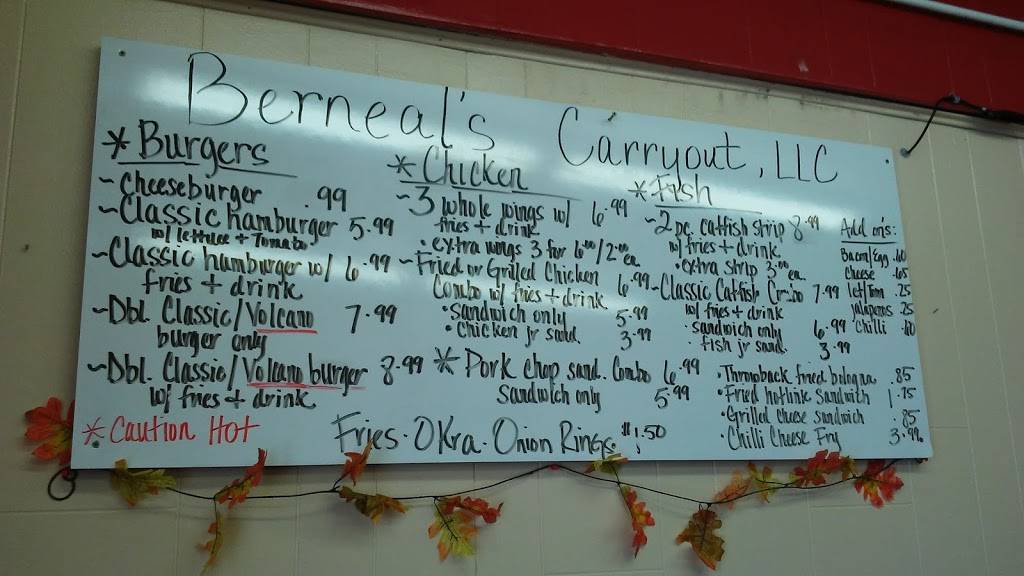 Berneal's Carryout, LLC
* Burgers
~ Cheeseburger .99
~ Classic hamburger 5.99
w/ lettuce + Tomato
~ Classic hamburger w/ 6.99
fries + drink
~ Dbl. Classic/Volcano 7.99
burger only
~ Dbl. Classic/Volcano burger 8.99
w/ fries + drink
* Caution Hot
* Chicken
~ 3 whole wings w/ 6.99
fries + drink
• extra wings 3 for 6.00/2.00 ea
~ Fried or Grilled Chicken 6.99
Combo w/ fries + drink
• sandwich only 5.99
• Chicken jr sand. 3.99
* Pork chop sand. Combo 6.99
Sandwich only 5.99
Fries · Okra · Onion Rings $1.50
* Fish
~ 2 pc. catfish strip 8.99
w/ fries + drink
• extra strip 3.00 ea.
~ Classic Catfish Combo 7.99
w/ fries + drink
• sandwich only 6.99
• fish jr sand. 3.99
Add on's:
Bacon/Egg .60
Cheese .65
let/Tom .25
jalapenos .25
Chilli .60
• Throwback fried bologna .85
• Fried hotlink sandwich 1.75
• Grilled cheese sandwich .85
• Chilli Cheese Fry 3.99